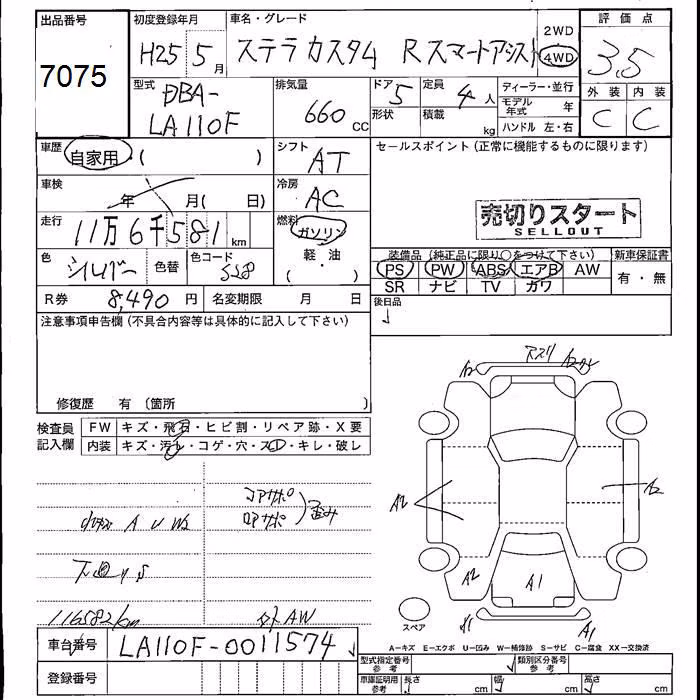 出品番号
7075
初度登録年月
H25 5月
車名・グレード
ステラカスタム Rスマートアシスト
2WD
4WD
評価点
3.5
外装 内装
C C
型式
DBA-
LA110F
排気量
660 cc
ドア 5
形状
定員 4人
積載 kg
ディーラー・並行
モデル年式 年
ハンドル 左・右
車歴 自家用・( )
シフト AT
セールスポイント(正常に機能するものに限ります)
車検 年 月( 日)
冷房 AC
売切りスタート
SELLOUT
走行 11万6千581km
燃料 ガソリン
軽・油
( )
色 シルバー 色替 色コード S28
装備品(純正品に限り○をつけて下さい) 新車保証書
PS PW ABS エアB AW 有・無
SR ナビ TV カワ
R券 8,490円 名変期限 月 日
後日品
注意事項申告欄(不具合内容等は具体的に記入して下さい)
修復歴 有(箇所 )
検査員記入欄
FW キズ・飛石・ヒビ割・リペア跡・X要
内装 キズ・汚れ・コゲ・穴・スレ・キレ・破レ
コアサポ
ロアサポ
歪み
小キズ A U W2
下廻り S
116582km
外AW
A2
A2
A2
A2
A1
A1
A1
スペア
A-キズ E-エクボ U-凹み W-補修跡 S-サビ C-腐食 XX-交換済
車台番号 LA110F-0011574
登録番号
型式指定番号 参考
類別区分番号 参考
車庫証明用 参考
長さ cm 幅 cm 高さ cm